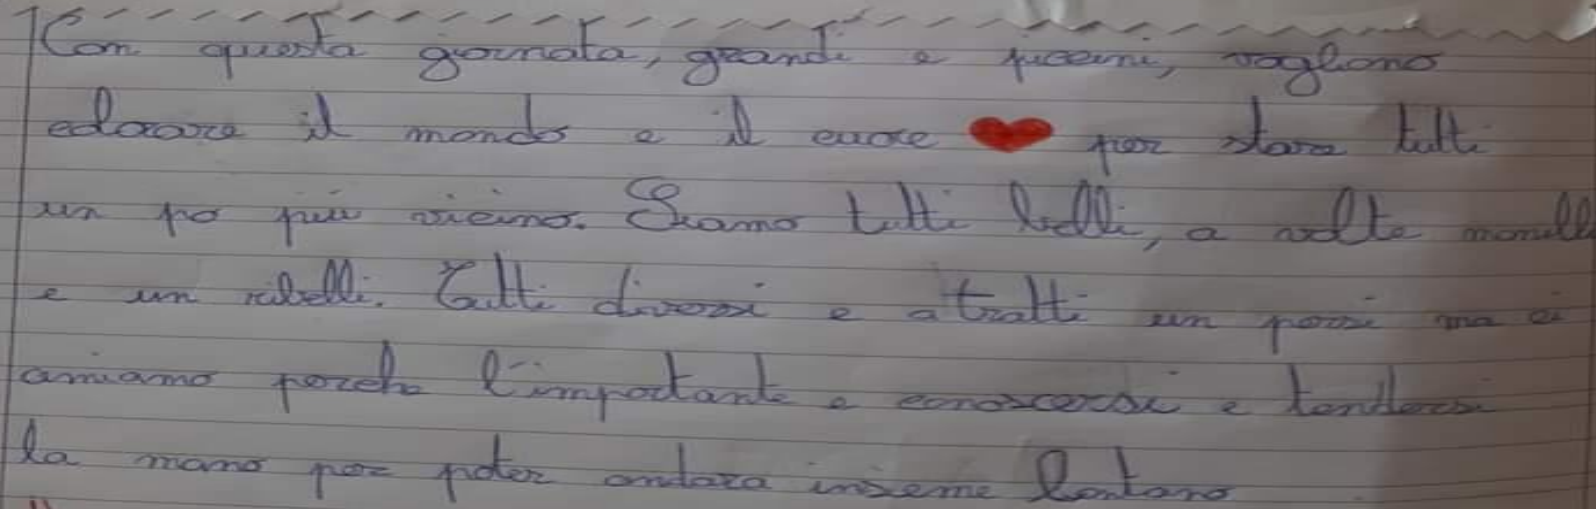 Con questa giornata, grandi e piccini, vogliono
colorare il mondo e il cuore ❤ per stare tutti
un po più vicino. Siamo tutti belli, a volte monelli
e un ribelli. Tutti diversi e a tratti un persi ma ci
amiamo perche l'importante e conoscersi e tendersi
la mano per poter andare insieme lontano